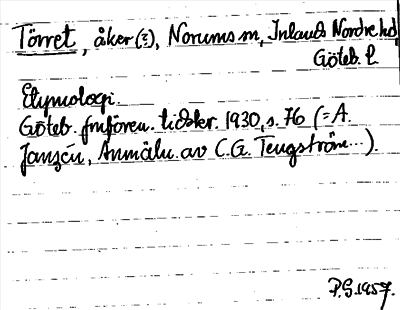 Törret, åker (?), Norums sn, Inlands Nordre hd,
Göteb. l.
Etymologi.
Göteb. fmfören. tidskr. 1930, s. 76 (= A.
Janzén, Anmäln. av C.G. Tengström...).
P.G. 1957.